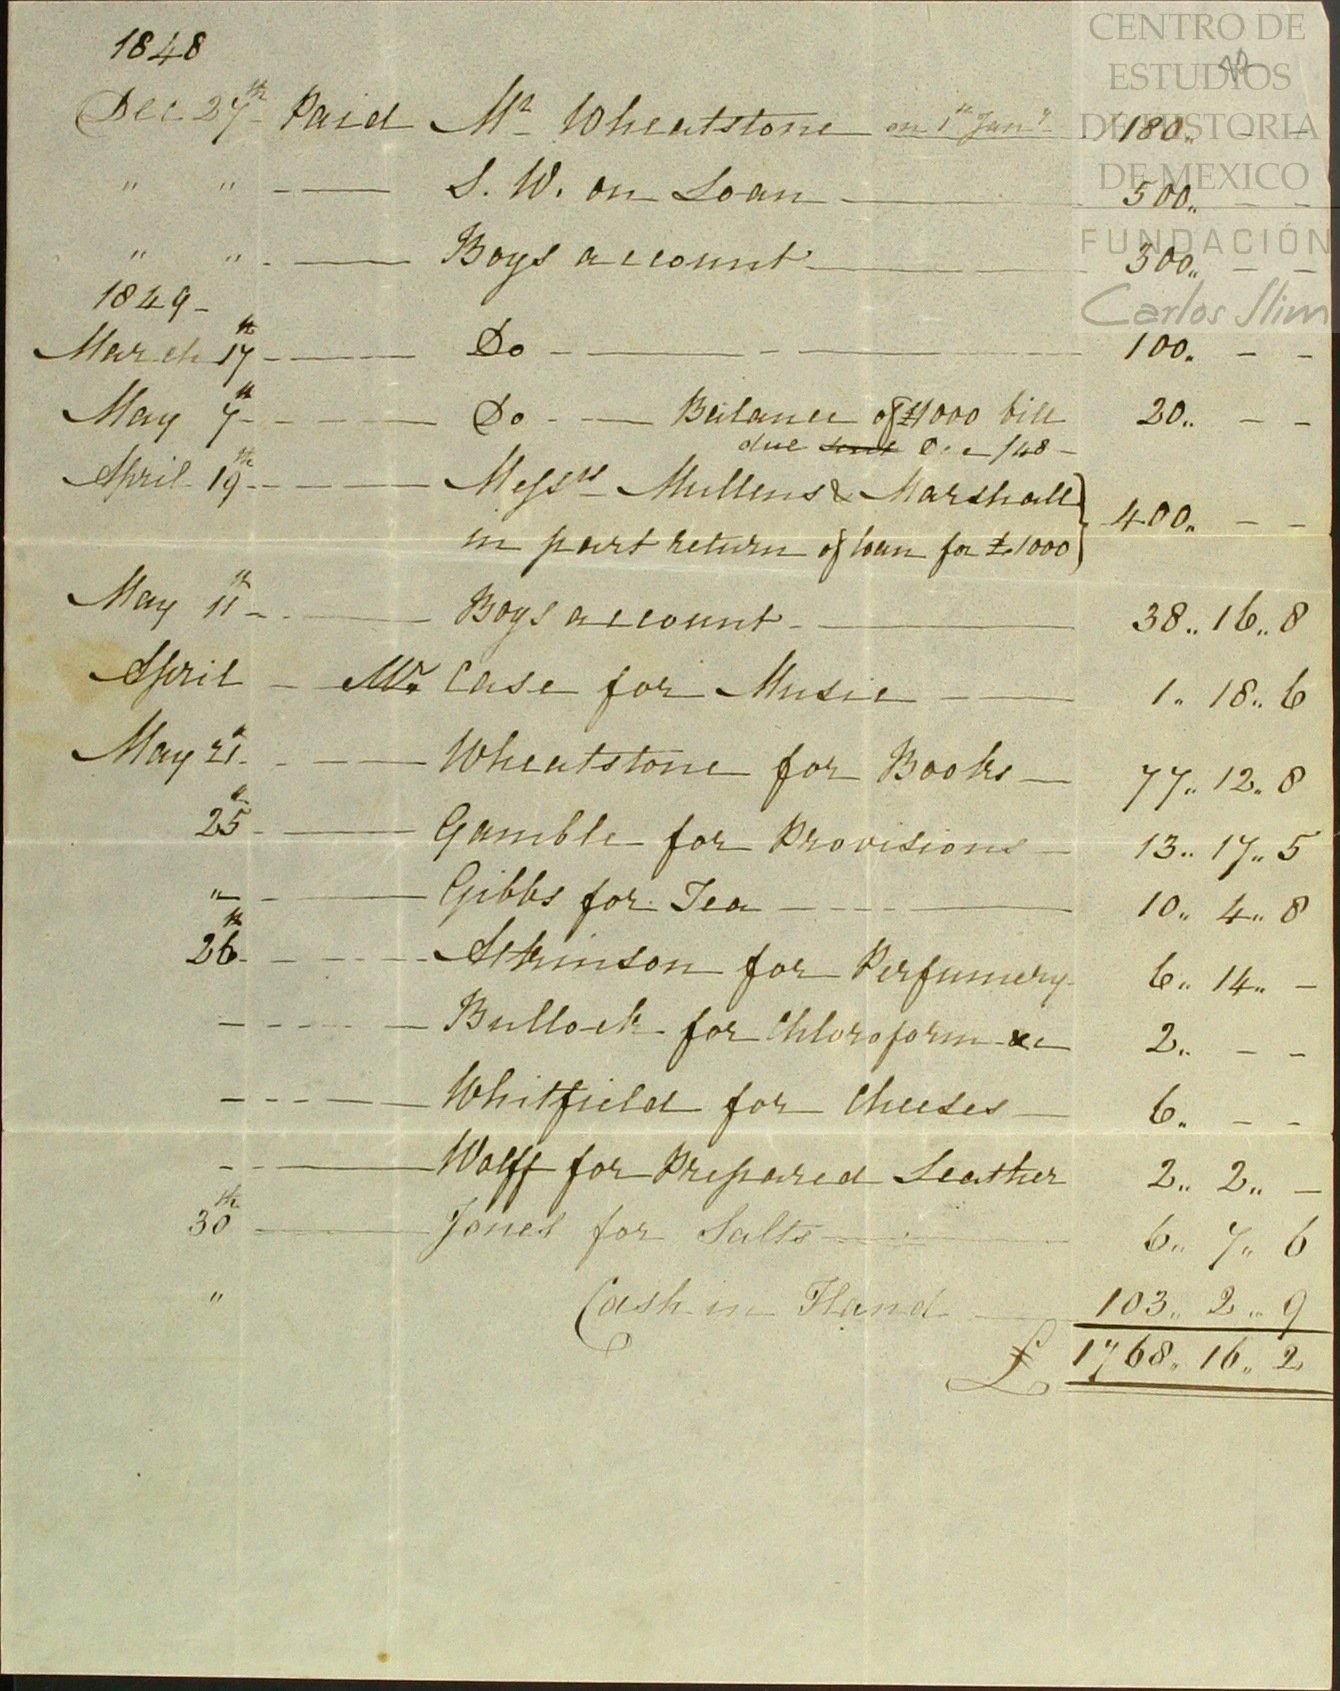 CENTRO DE
ESTUDIOS
DE HISTORIA
DE MEXICO
FUNDACIÓN
Carlos Slim
1848
Dec 27th Paid Mr Wheatstone on 1st Jany 180.. - -
" " - — S. W. on Loan — 500.. - -
" " - — Boys account — 300.. - -
1849 -
March 17th - — Do - — 100.. - -
May 7th - — Do - — Balance of £1000 bill 20.. - -
due Dec /48 -
April 19th - — Messrs Mullens & Marshall
in part return of loan for £1000 } 400.. - -
May 11th - — Boys account - — 38.. 16.. 8
April - — Mr. Case for Music — 1.. 18.. 6
May 21st - — Wheatstone for Books — 77.. 12.. 8
25th - — Gamble for Provisions — 13.. 17.. 5
" - — Gibbs for Tea - — 10.. 4.. 8
26th - — Atkinson for Perfumery 6.. 14.. -
- — Bullock for Chloroform &c 2.. - -
- — Whitfield for Cheeses — 6.. - -
- — Wolff for Prepared Leather 2.. 2.. -
30th — Jones for Salts — 6.. 7.. 6
" Cash in Hand — 103.. 2.. 9
£ 1768.. 16.. 2